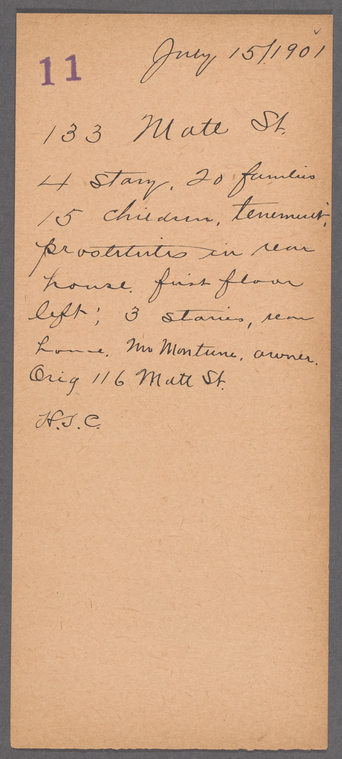 July 15/1901
11
133 Mott St.
4 story, 20 families
15 children, tenement,
prostitutes in rear
house. first floor
left; 3 stories, rear
house. Mr Montune, owner.
Orig 116 Mott St.
H.S.C.